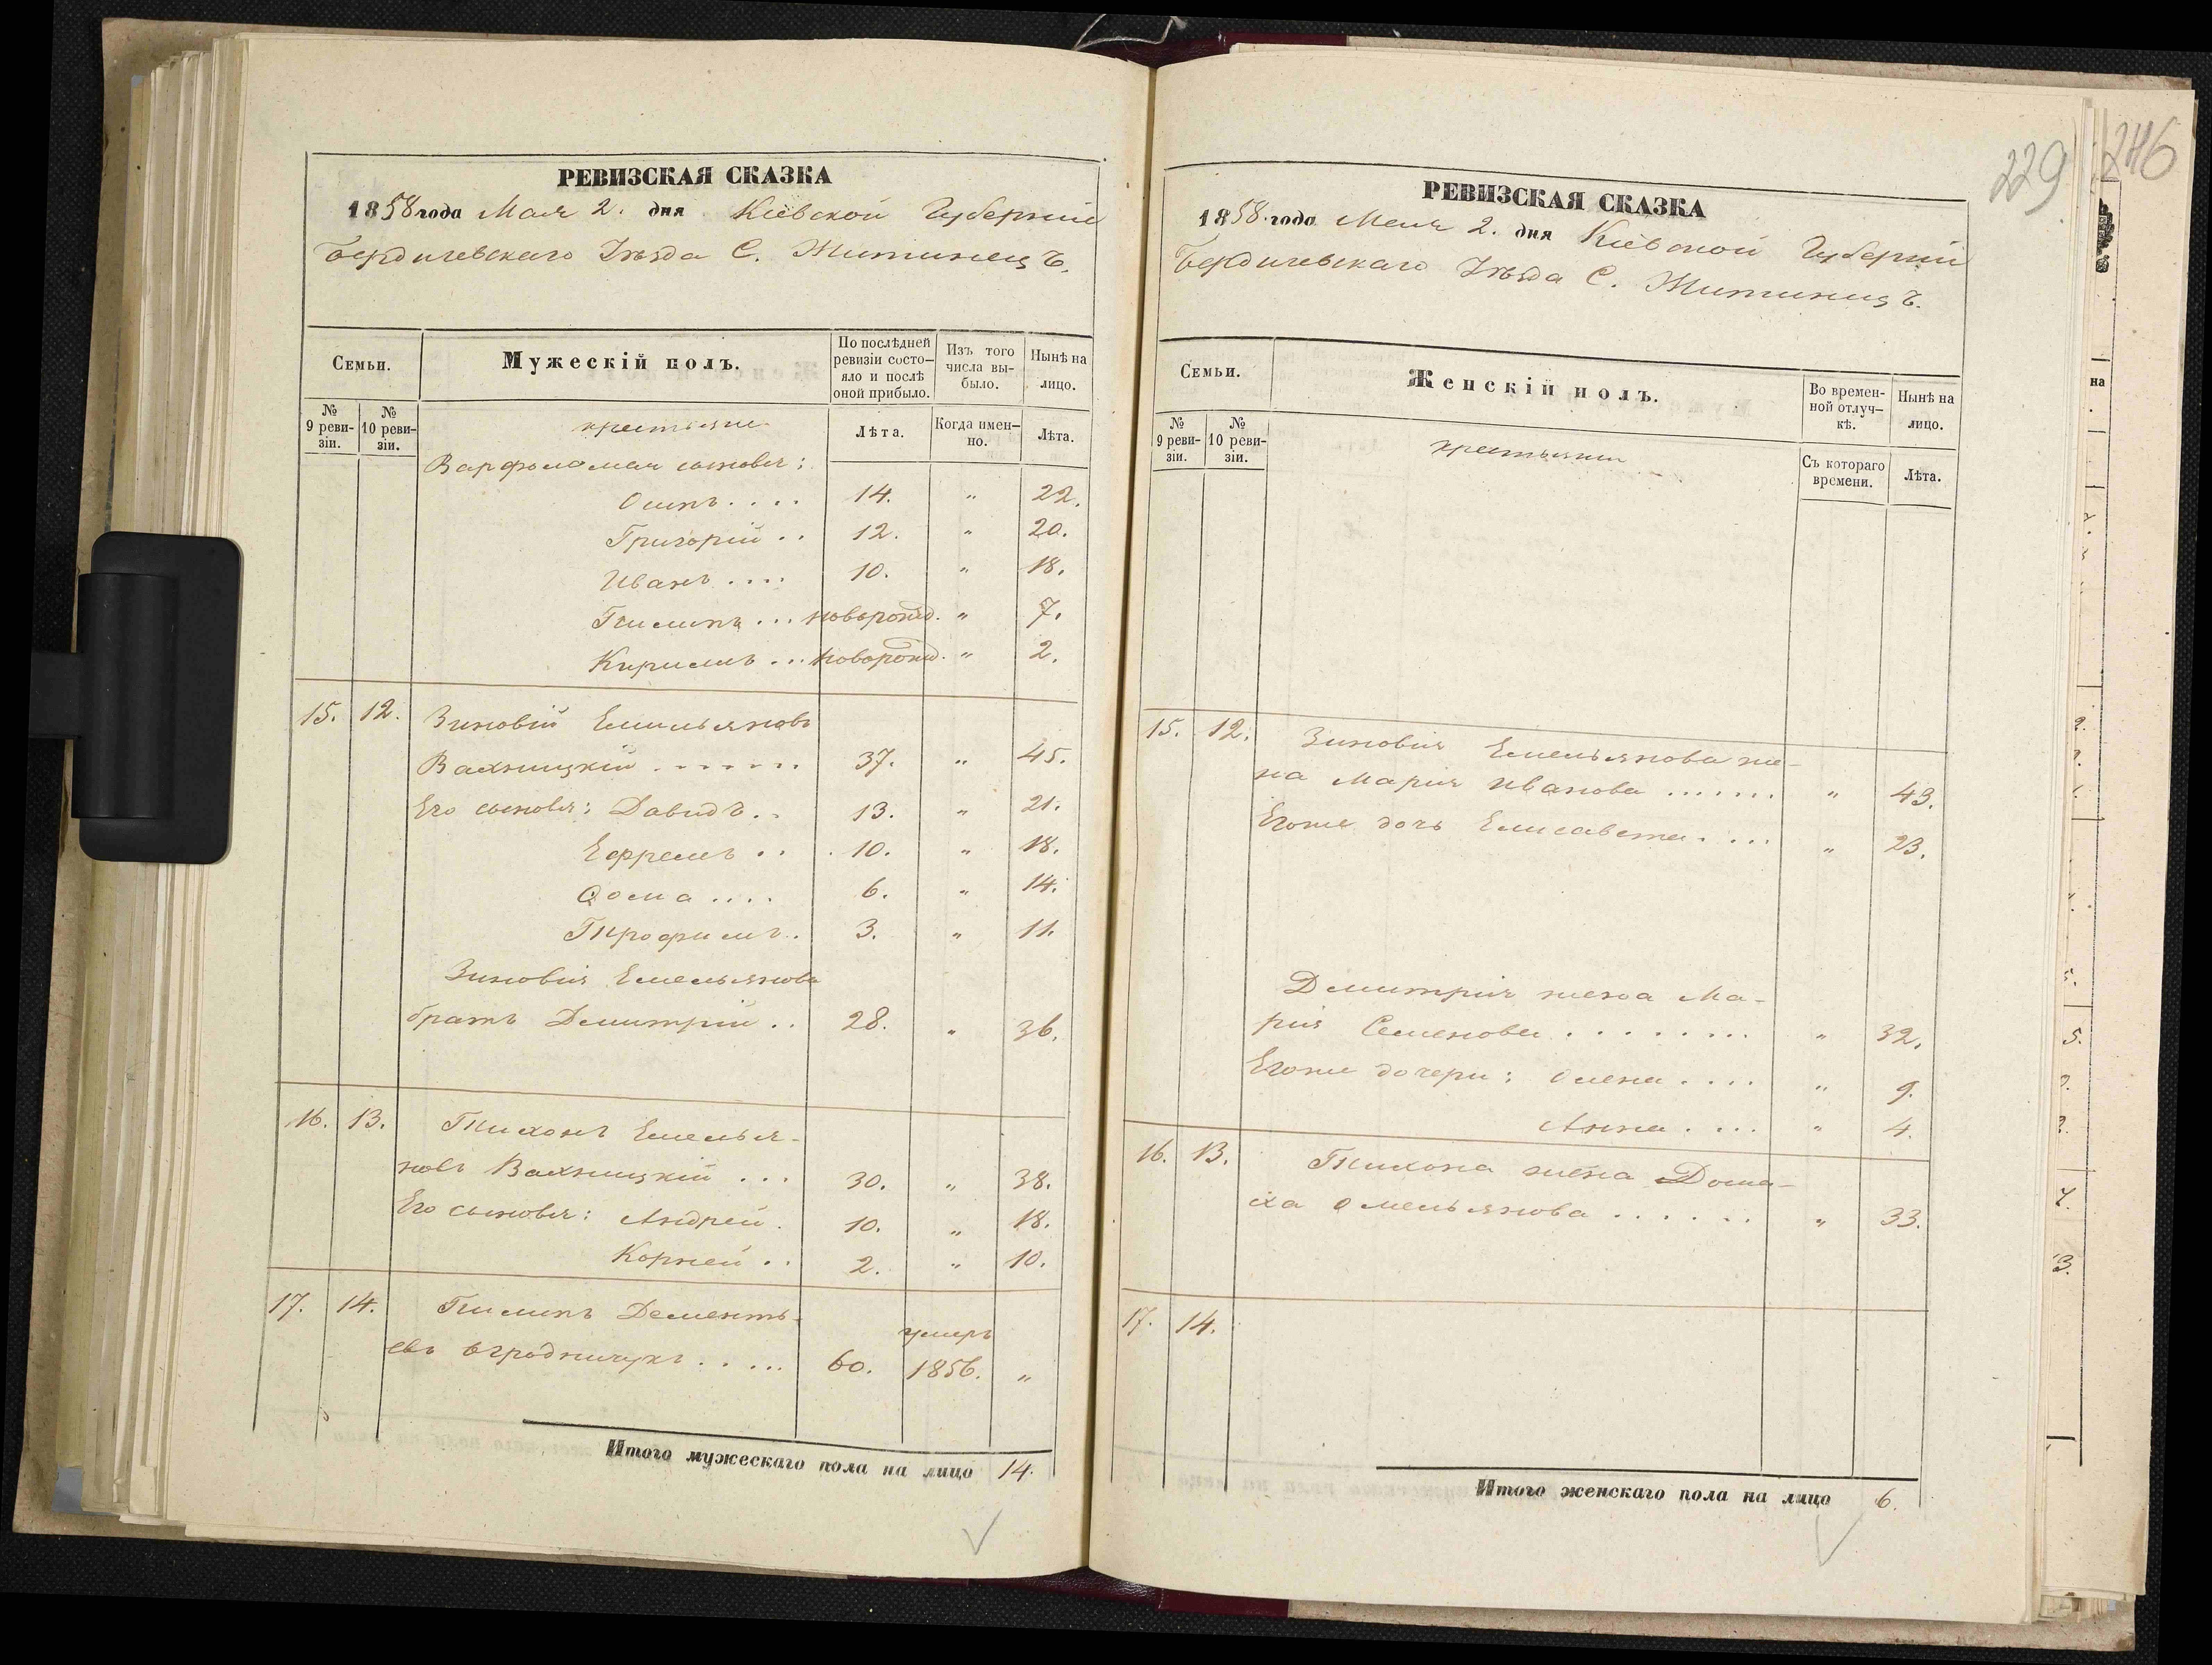 РЕВИЗСКАЯ СКАЗКА
1858 года Мая 2. дня Кіевской Губерніи
Бердичевскаго Уѣзда С. Житинецъ.
Семьи.
Мужескій полъ.
По послѣдней ревизіи состо-
яло и послѣ оной прибыло.
Изъ того числа вы-
было.
Нынѣ на лицо.
№ 9 реви-
зіи.
№ 10 реви-
зіи.
крестьяне
Лѣта.
Когда имен-
но.
Лѣта.
Варфоломея сыновья:
Осипъ.... 14. " 22.
Григорій.. 12. " 20.
Иванъ.... 10. " 18.
Филипъ... новорожд. " 7.
Кирилъ... новорожд. " 2.
15. 12. Зиновій Емельяновъ
Вахницкій....... 37. " 45.
Его сыновья: Давидъ.. 13. " 21.
Ефремъ.. 10. " 18.
Ѳома.... 6. " 14.
Трофимъ.. 3. " 11.
Зиновія Емельянова
братъ Дмитрій.. 28. " 36.
16. 13. Тихонъ Емелья-
новъ Вахницкій... 30. " 38.
Его сыновья: Андрей. 10. " 18.
Корней.. 2. " 10.
17. 14. Филипъ Дементь-
евъ Огродничукъ..... 60. умеръ 1856. "
Итого мужескаго пола на лицо 14.
229
246
РЕВИЗСКАЯ СКАЗКА
1858. года Мая 2. дня Кіевской Губерніи
Бердичевскаго Уѣзда С. Житинецъ.
Семьи.
Женскій полъ.
Во времен-
ной отлуч-
кѣ.
Нынѣ на лицо.
№ 9 реви-
зіи.
№ 10 реви-
зіи.
крестьяне
Съ котораго времени.
Лѣта.
15. 12. Зиновія Емельянова же-
на Марія Иванова....... " 43.
Егоже дочь Елисавета.... " 23.
Дмитрія жена Ма-
рія Семенова........ " 32.
Егоже дочери: Олена.... " 9.
Анна.... " 4.
16. 13. Тихона жена Дома-
ха Омельянова...... " 33.
17. 14.
Итого женскаго пола на лицо 6.